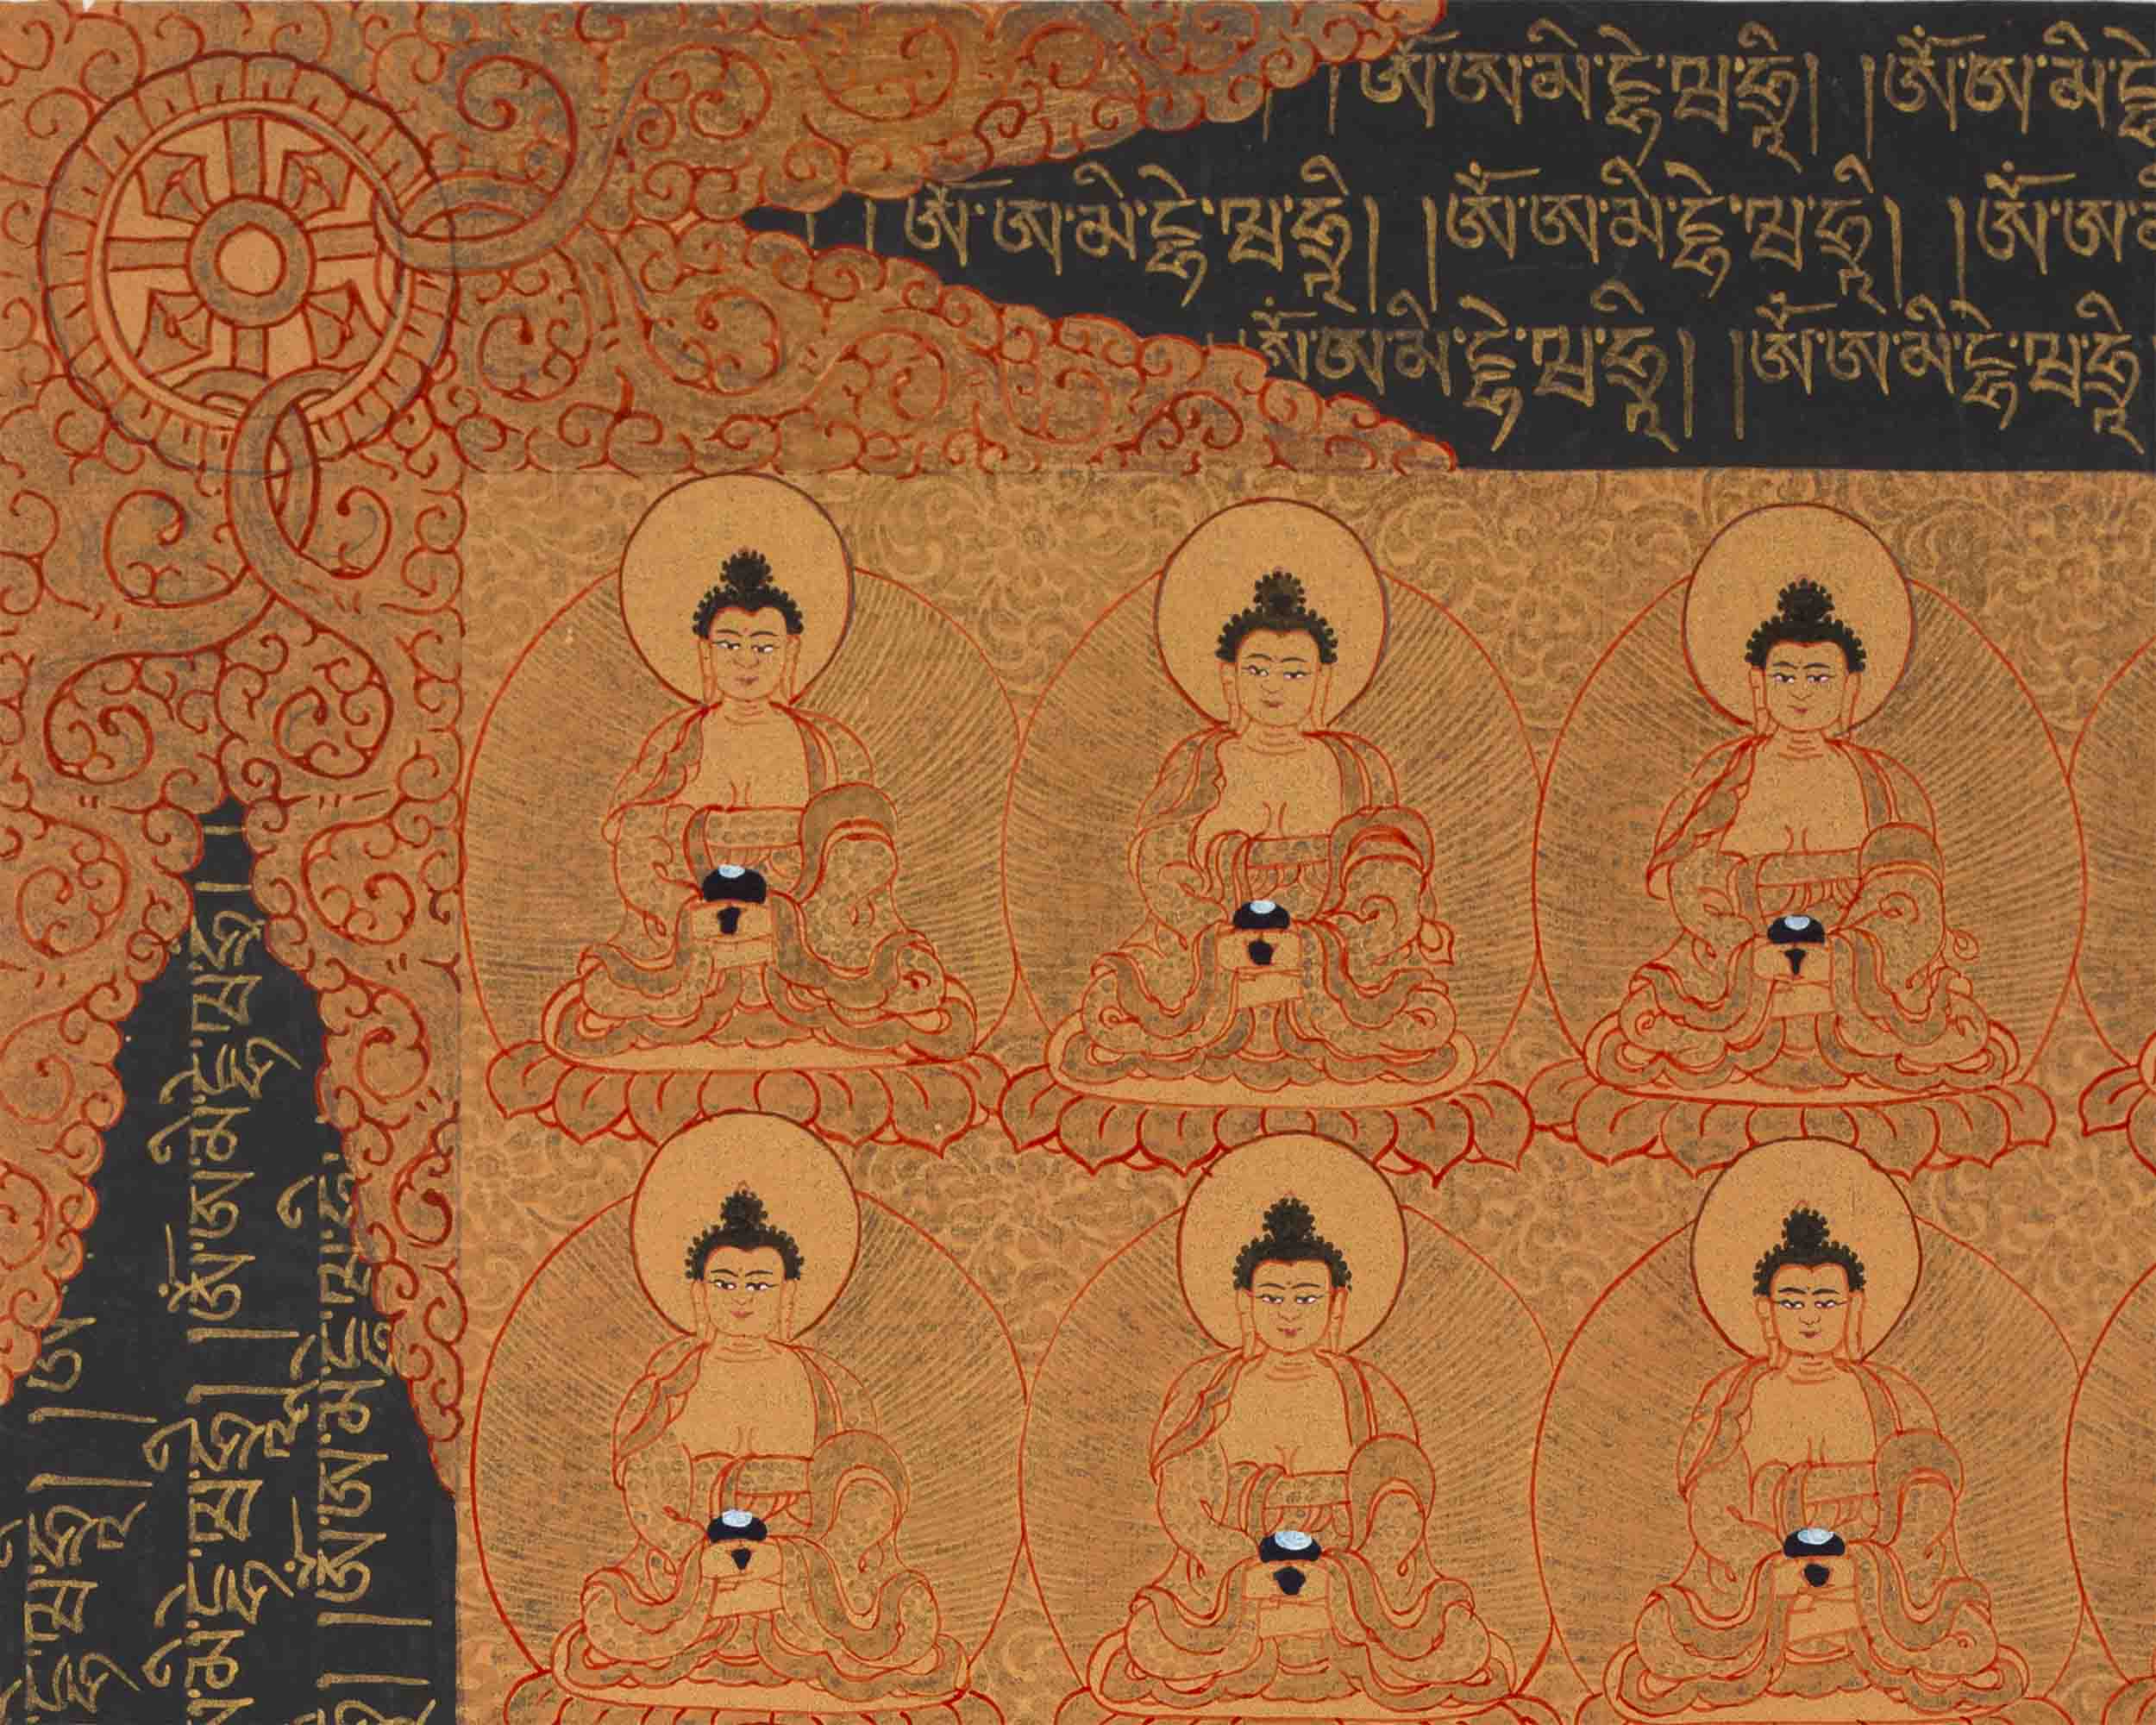 ། །ཨོཾ་ཨ་མི་དྷེ་ཝ་ཧྲཱི། །ཨོཾ་ཨ་མི་དྷེ
། །ཨོཾ་ཨ་མི་དྷེ་ཝ་ཧྲཱི། །ཨོཾ་ཨ་མི་དྷེ་ཝ་ཧྲཱི། །ཨོཾ་ཨ་
ཨོཾ་ཨ་མི་དྷེ་ཝ་ཧྲཱི། །ཨོཾ་ཨ་མི་དྷེ་ཝ་ཧྲཱི
དྷེ་ཝ་ཧྲཱི། །
ཨ་མི་དྷེ་ཝ་ཧྲཱི། །ཨོཾ་ཨ་མི་དྷེ་ཝ་ཧྲཱི། །
ཧྲཱི། །ཨོཾ་ཨ་མི་དྷེ་ཝ་